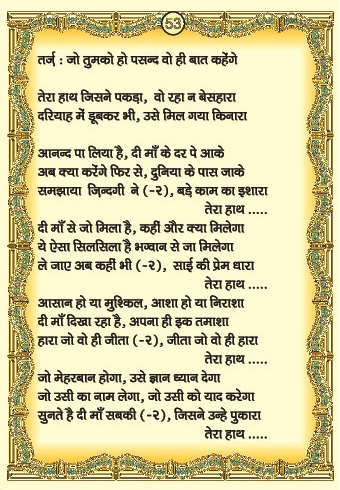 53
तर्ज : जो तुमको हो पसन्द वो ही बात कहेंगे
तेरा हाथ जिसने पकड़ा, वो रहा न बेसहारा
दरियाह में डूबकर भी, उसे मिल गया किनारा
आनन्द पा लिया है, दी माँ के दर पे आके
अब क्या करेंगे फिर से, दुनिया के पास जाके
समझाया ज़िन्दगी ने (-२), बड़े काम का इशारा
तेरा हाथ .....
दी माँ से जो मिला है, कहीं और क्या मिलेगा
ये ऐसा सिलसिला है भगवान से जा मिलेगा
ले जाए अब कहीं भी (-२), साई की प्रेम धारा
तेरा हाथ .....
आसान हो या मुश्किल, आशा हो या निराशा
दी माँ दिखा रहा है, अपना ही इक तमाशा
हारा जो वो ही जीता (-२), जीता जो वो ही हारा
तेरा हाथ .....
जो मेहरबान होगा, उसे ज्ञान ध्यान देगा
जो उसी का नाम लेगा, जो उसी को याद करेगा
सुनते है दी माँ सबकी (-२), जिसने उन्हे पुकारा
तेरा हाथ .....